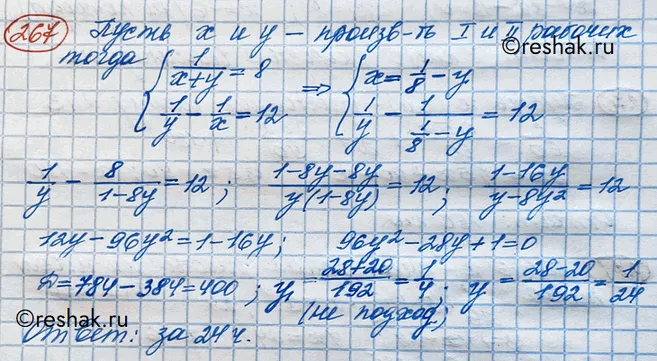 267 Пусть x и y – произв-ть I и II рабочих
©reshak.ru
тогда { 1/(x+y) = 8 ⇒ { x = 1/8 - y
1/y - 1/x = 12 1/y - 1/(1/8 - y) = 12
1/y - 8/(1-8y) = 12 ; (1-8y-8y)/(y(1-8y)) = 12 ; (1-16y)/(y-8y²) = 12
12y - 96y² = 1 - 16y ; 96y² - 28y + 1 = 0
D = 784 - 384 = 400 ; y₁ = (28+20)/192 = 1/4 ; y = (28-20)/192 = 1/24
(не подход)
©reshak.ru
Ответ: за 24 ч.